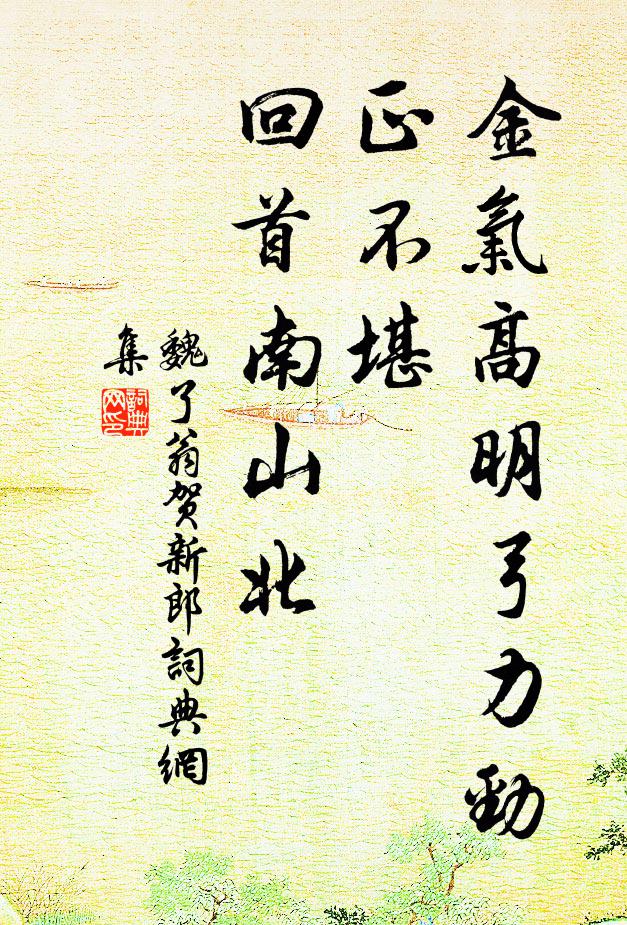 金氣高明弓力勁
正不堪
回首南山北
魏了翁賀新郎詞典網
集
詞典
网印